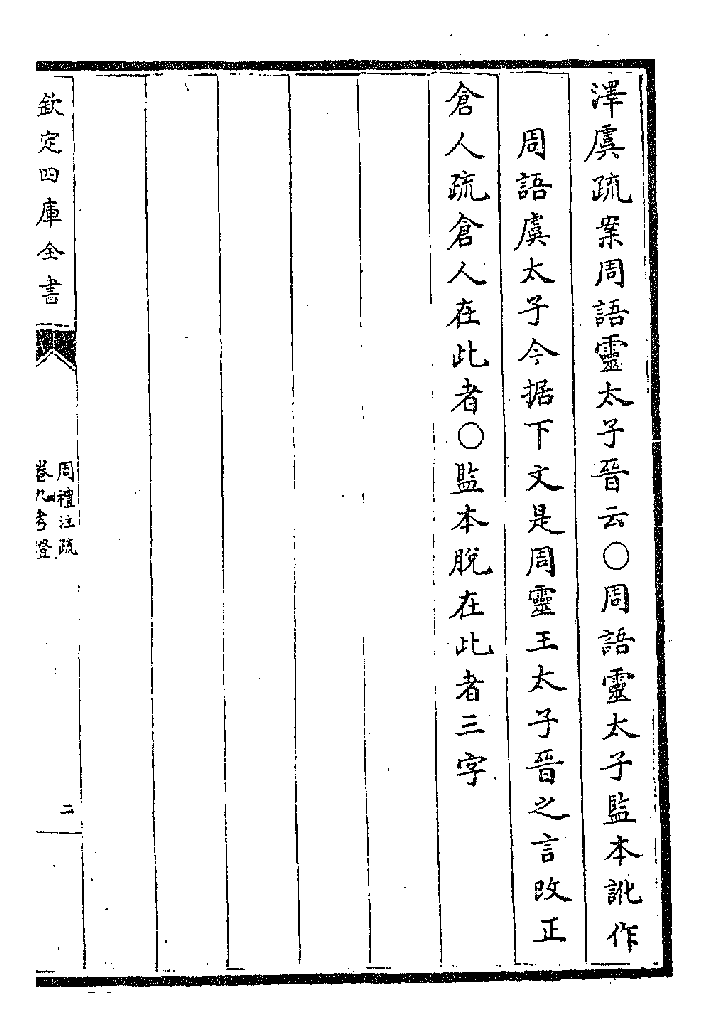 澤虞疏案周語靈太子晉云○周語靈太子監本訛作
周語虞太子今据下文是周靈王太子晉之言改正
倉人疏倉人在此者○監本脫在此者三字
欽定四庫全書
周禮注疏
卷九考證
二